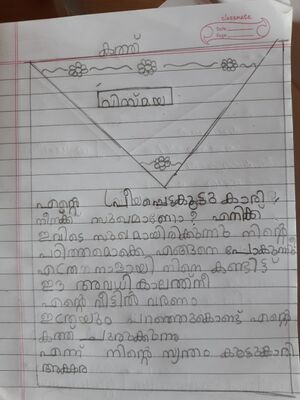 classmate
Date
Page
കത്ത്
വിസ്മയ
എന്റെ പ്രീയപ്പെട്ടകൂട്ടുകാരി
നിനക്ക് സുഖമാണോ? എനിക്ക്
ഇവിടെ സുഖമായിരിക്കുന്നു നിന്റെ
പഠിത്തമൊക്കെ എങ്ങനെ പോകുന്നു
എത്രനാളായി നിന്നെ കണ്ടിട്ട്
ഈ അവധികാലത്ത്നീ
എന്റെ വീട്ടിൽ വരണം
ഇത്രയും പറഞ്ഞുകൊണ്ട് എന്റെ
കത്ത് ചുരുക്കുന്നു
എന്ന് നിന്റെ സ്വന്തം കൂട്ടുകാരി
അക്ഷര